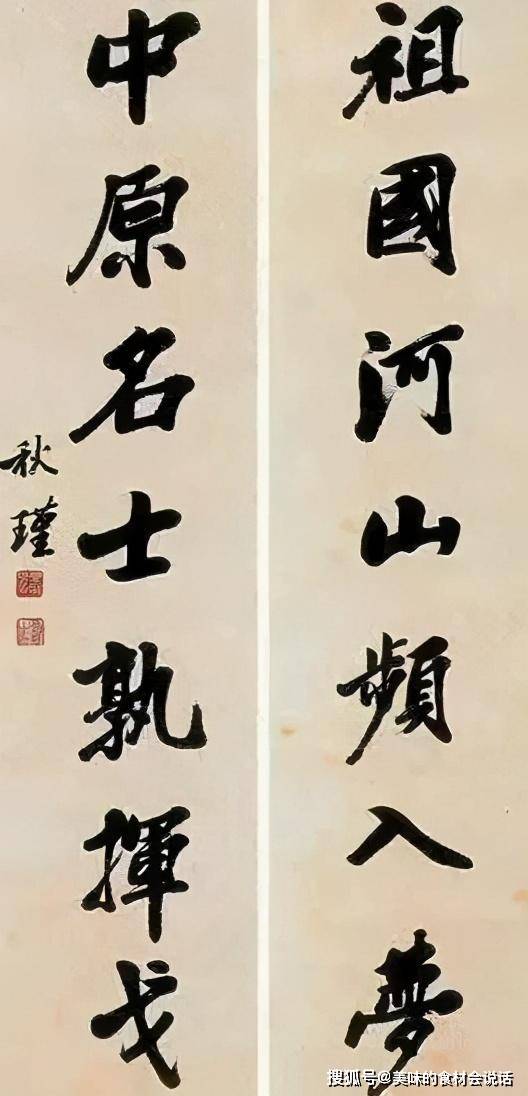 祖國河山頻入夢
中原名士孰揮戈
秋瑾
搜狐号@美味的食材会说话